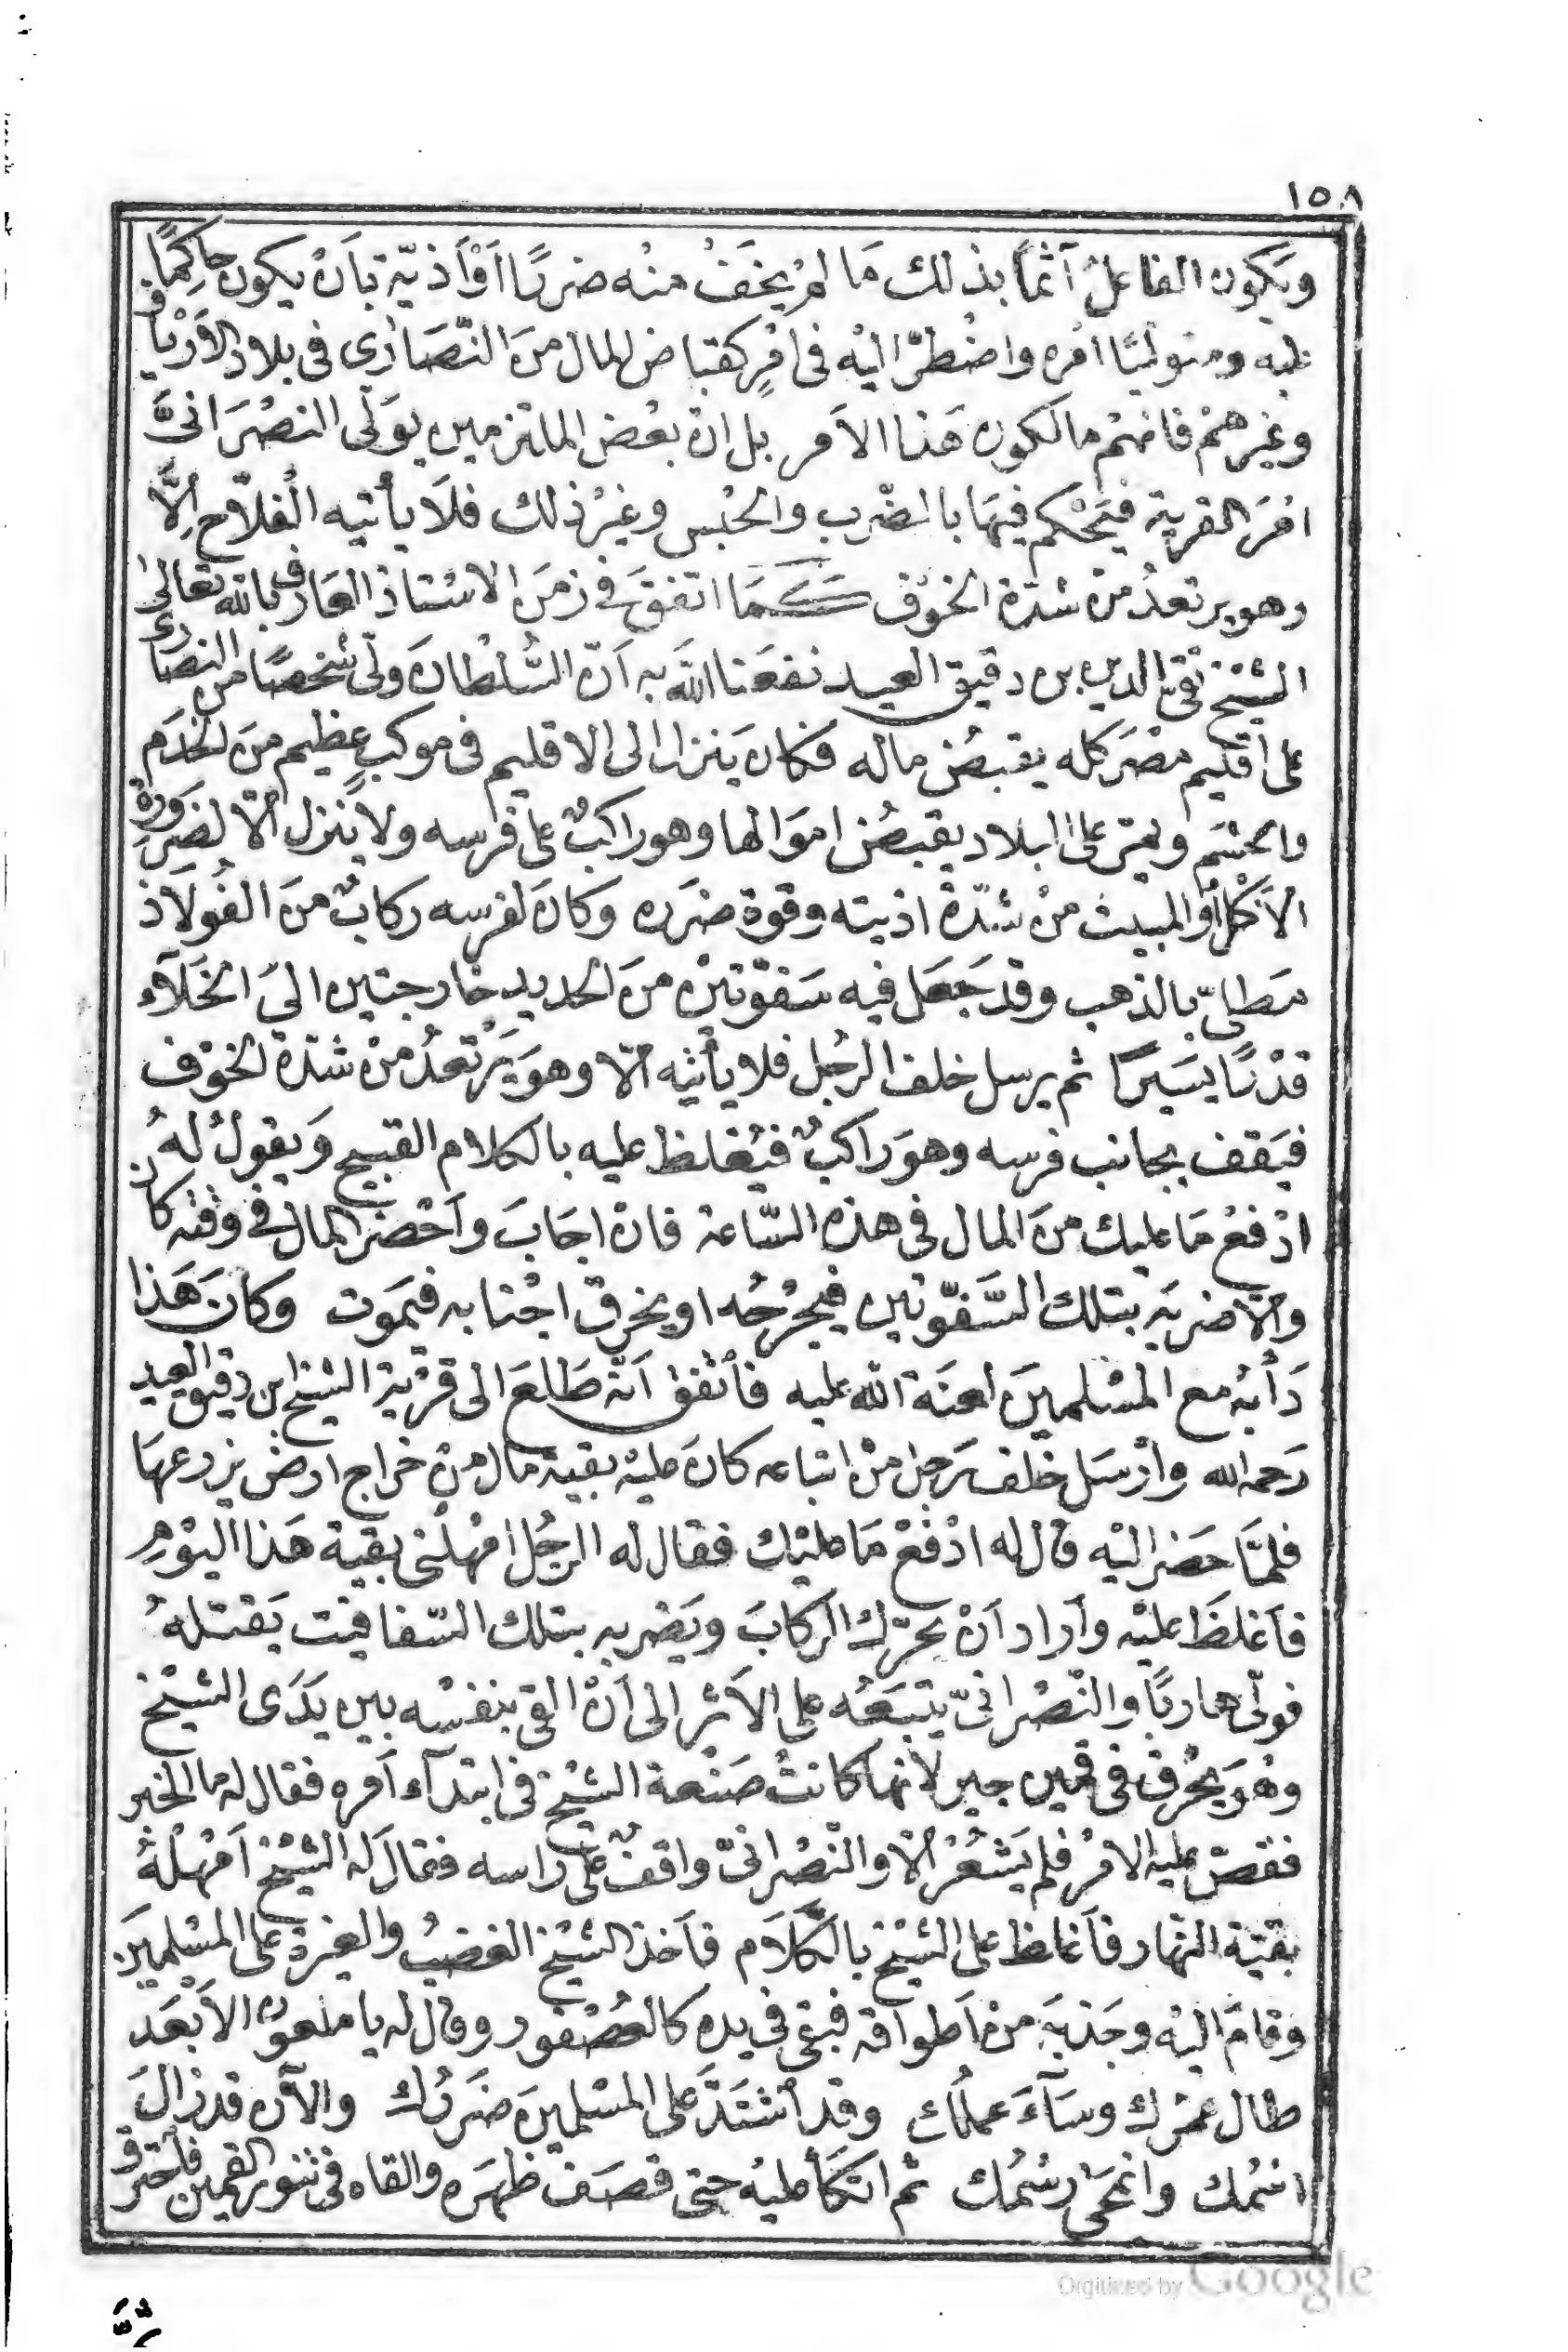 ١٥٨
ويَكون الفاعلُ آثماً بذلك مَا لمْ يخفْ منْه ضررًا أوْ أذيّة بأنْ يكون حاكِمًا
عليه ومتوليًا امْره واضْطرّ اليْه فى امْرٍ كقباض المال منَ النّصَارى فى بلاد الارْياف
وغيرهمْ فانهمْ مالكون هَذا الاَمر بل انّ بعْض الملتزمين يوَلّى النصْرَانىَّ
امْرَ القرية فيَحْكم فيهَا بالضّرب والحبْس وغيْر ذلك فلَا يأتيه الْفلّاح اِلَّا
وهو يرتعدُ منْ شدّة الخوْف كَمَا اتّفقَ فى زمَن الاسْتاذ العَارف بالله تعَالى
الشيْخ تقىّ الدين بن دقيق العيد نفعَنا اللّه به اَنّ السُّلطانَ ولّى شخْصًا من النصَارى
على اقليم مصْرَ كله يقبضُ ماله فكان يَنزل الى الاقليم فى موكبٍ عظيم منَ الخدَم
والحشَم ويمرّ علىٰ البلاد يقبضُ امْوَالها وهو راكبٌ على فرسه ولا يَنزل اِلّا لضَرورة
الاَكْل أوْ المبيت منْ شدّة اذيته وقوة ضرَره وكانَ لفرسه ركابٌ منَ الفُولَاذ
مَطلىّ بالذهب وقدْ جَعَل فيه سَفوّتيْن منَ الحديد خارجتين الىَ الخَلَآء
قدْرًا يسَيرًا ثم يرسل خلف الرجُل فلا يأتيه اِلّا وهوَ يَرْتعدُ منْ شدّة الخوْف
فيَقف بجانب فرسه وهوَ راكبٌ فيُغلظ عليه بالكلام القبيح وَيقولُ لهُ
ادْفعْ مَا عليك منَ المال فى هذه السّاعة فانْ اجَابَ وأحْضرَ المال فى وقته كان
والّا ضربَه بتلك السَّفوّتين فيجْرحُه او يخرق اجْنابه فيمَوت وكانَ هَذا
دَأْبُه مع المسْلمينَ لعنَة اللّه عليه فأتّفق اَنّه طَلعَ الى قرْية الشيْخ ابن دقيق العيد
رَحمه الله وارْسَل خلف رَجل منْ اتباعه كانَ عليْه بقية مَال منْ خراج ارض يزرعهَا
فلمَّا حَضر اليْه قال له ادْفعْ مَا عليْك فقال له الرجُل امْهلْنى بقية هَذا اليوْمِ
فاَغلظَ عليْه واَراد اَنْ يحرّك الركابَ ويَضربه بتلك السّفافيت يَقتلهُ
فولّى هاربًا والنّصْرانىّ يتْبَعُه على الاَثر الى اَنْ القى بنفسْه بين يَدَى الشيْخ
وهُوَ يحْرق فى قمين جير لانّها كانتْ صَنْعة الشيْخ فى ابتدآء اَمره فقال له ما الخبر
فقصّ عليه الامْر فلم يَشعُرْ اِلّا والنّصْرانىّ واقفٌ على راسه فقالَ له الشيْخ اَمْهلْهُ
بقيّة النّهار فاَغلظ على الشيْخ بالكَلَام فاَخذ الشيْخ الغضبُ والغيْرة على المسْلمينَ
وقامَ اليْه وجَذبَه منْ اَطواقه فبقى فى يده كالعصْفور وقال له يا ملعوْن الاَبْعَد
طال عمْرك وسَآءَ عملُك وقد اشْتَدَّ على المسْلمينَ ضرَرُك والآن قدْ زالَ
اسْمُك وانمْحَى رسْمُك ثم اتكأ عليْه حتى قصَف ظهرَه والقاه فى تنور القمين فاحْترق